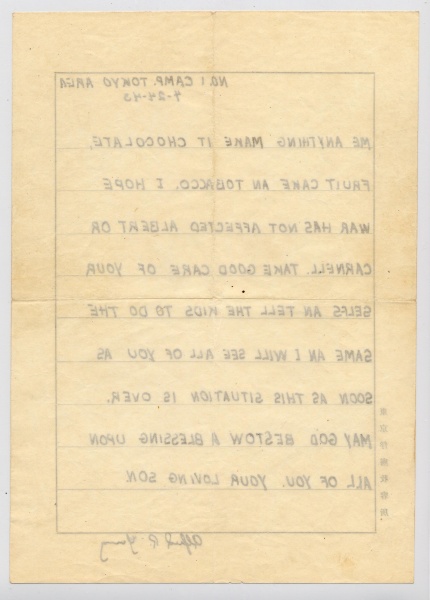 NO. 1 CAMP. TOKYO AREA
4-24-43
ME ANYTHING MAKE IT CHOCOLATE,
FRUIT CAKE AN TOBACCO. I HOPE
WAR HAS NOT AFFECTED ALBERT OR
CARNELL. TAKE GOOD CARE OF YOUR
SELFS AN TELL THE KIDS TO DO THE
SAME AN I WILL SEE ALL OF YOU AS
SOON AS THIS SITUATION IS OVER.
MAY GOD BESTOW A BLESSING UPON
ALL OF YOU. YOUR LOVING SON.
東京俘虜収容所